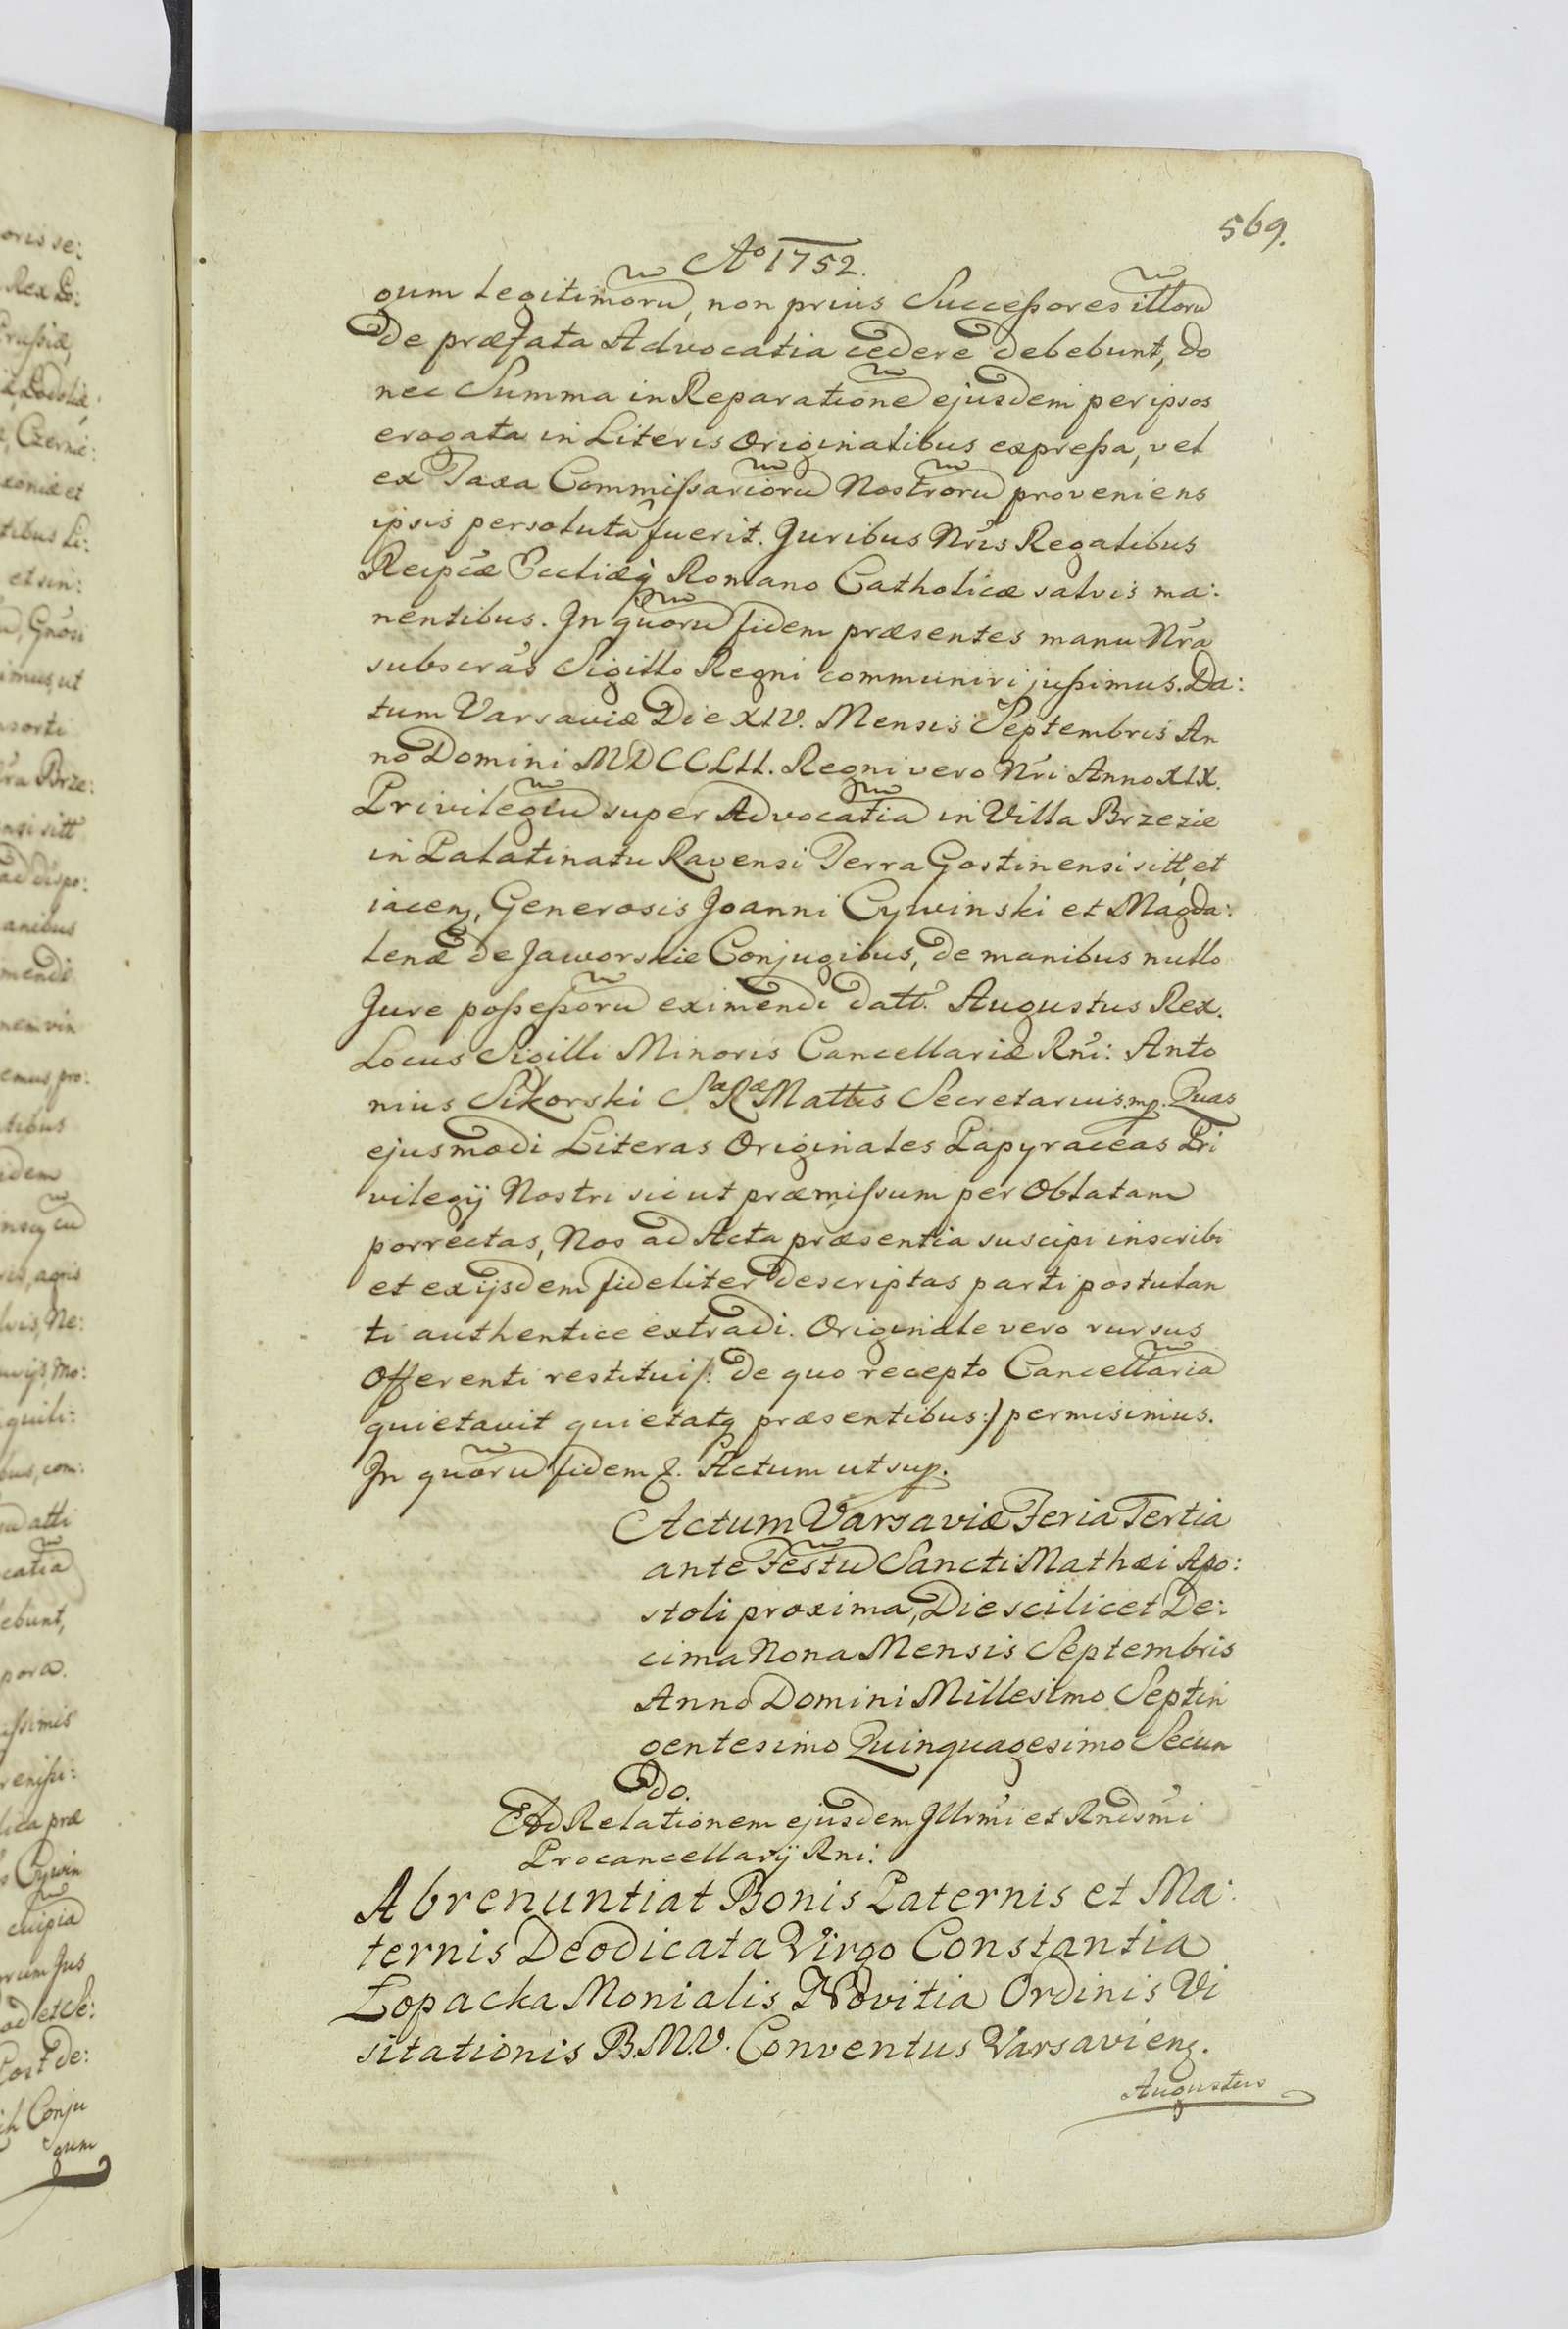 569.
Aº 1752.
gum legitimorũ, non prius Succeßores illorũ
de præfata Advocatia cedere debebunt, do
nec Summa in Reparationẽ ejusdem per ipsos
erogata in Literis Originalibus expreßa, vel
ex Taxa Commißariorũ Nostrorũ proveniens
ipsis persoluta fuerit. Juribus Nr̃is Regalibus
Reipcæ Eccliæq̃ Romano Catholicæ salvis ma:
nentibus. In quorũ fidem præsentes manu Nr̃a
subscrãs Sigillo Regni communiri jußimus. Da:
tum Varsaviæ Die XIV. Mensis Septembris An
no Domini MDCCLII. Regni vero Nr̃i Anno XIX.
Privilegiũ super Advocatiã in Villa Brzezie
in Palatinatu Ravensi Terra Gostinensi sitt, et
iacenꝫ, Generosis Joanni Cywinski et Magda:
lenæ de Jaworskie Conjugibus, de manibus nullo
Jure poßeßorũ eximendi datt. Augustus Rex.
Locus Sigilli Minoris Cancellariæ Rñi: Anto
nius Sikorski Sæ Ræ Mattis Secretarius mp. Quas
ejusmodi Literas Originales Papyraceas Pri
vilegij Nostri sicut præmißum per Oblatam
porrectas, Nos ad Acta præsentia suscipi inscribi
et ex ijsdem fideliter descriptas parti postulan
ti authentice extradi. Originale vero rursus
Offerenti restitui/: de quo recepto Cancellariã
quietavit quietatq præsentibus:/ permisimus.
In quorũ fidem &. Actum ut sup.
Actum Varsaviæ Feria Tertia
ante Festũ Sancti Mathæi Apo:
stoli proxima, Die scilicet De:
cima Nona Mensis Septembris
Anno Domini Millesimo Septin
gentesimo Quinquagesimo Secun
do.
Ad Relationem ejusdem Illrmi et Rndsmi
Procancellarij Rni:
Abrenuntiat Bonis Paternis et Ma:
ternis Deodicata Virgo Constantia
Łopacka Monialis Novitia Ordinis Vi
sitationis B.M.V. Conventus Varsavienꝫ.
Augustus